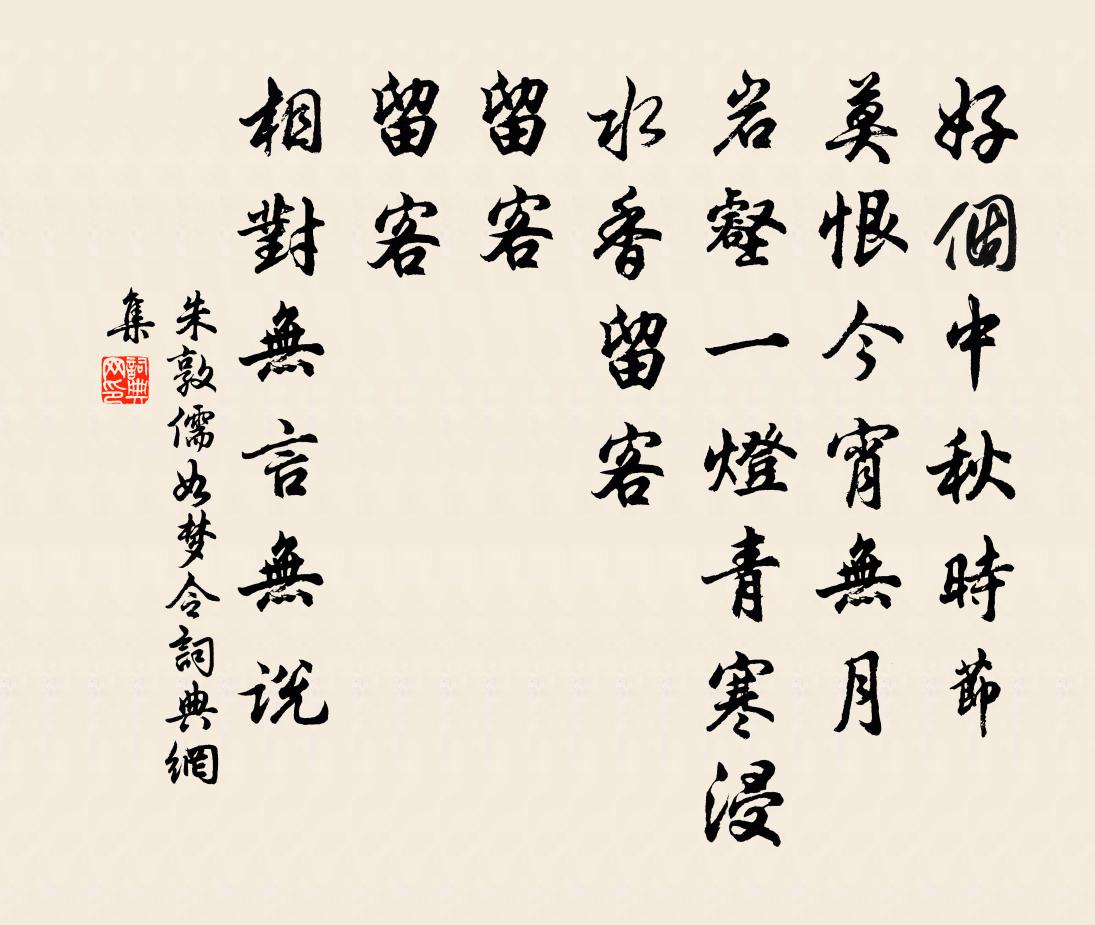 好個中秋時節
莫恨今宵無月
岩壑一燈青寒浸
水香留客
留客
留客
相對無言無説
朱敦儒如梦令詞典網
集
詞典网印